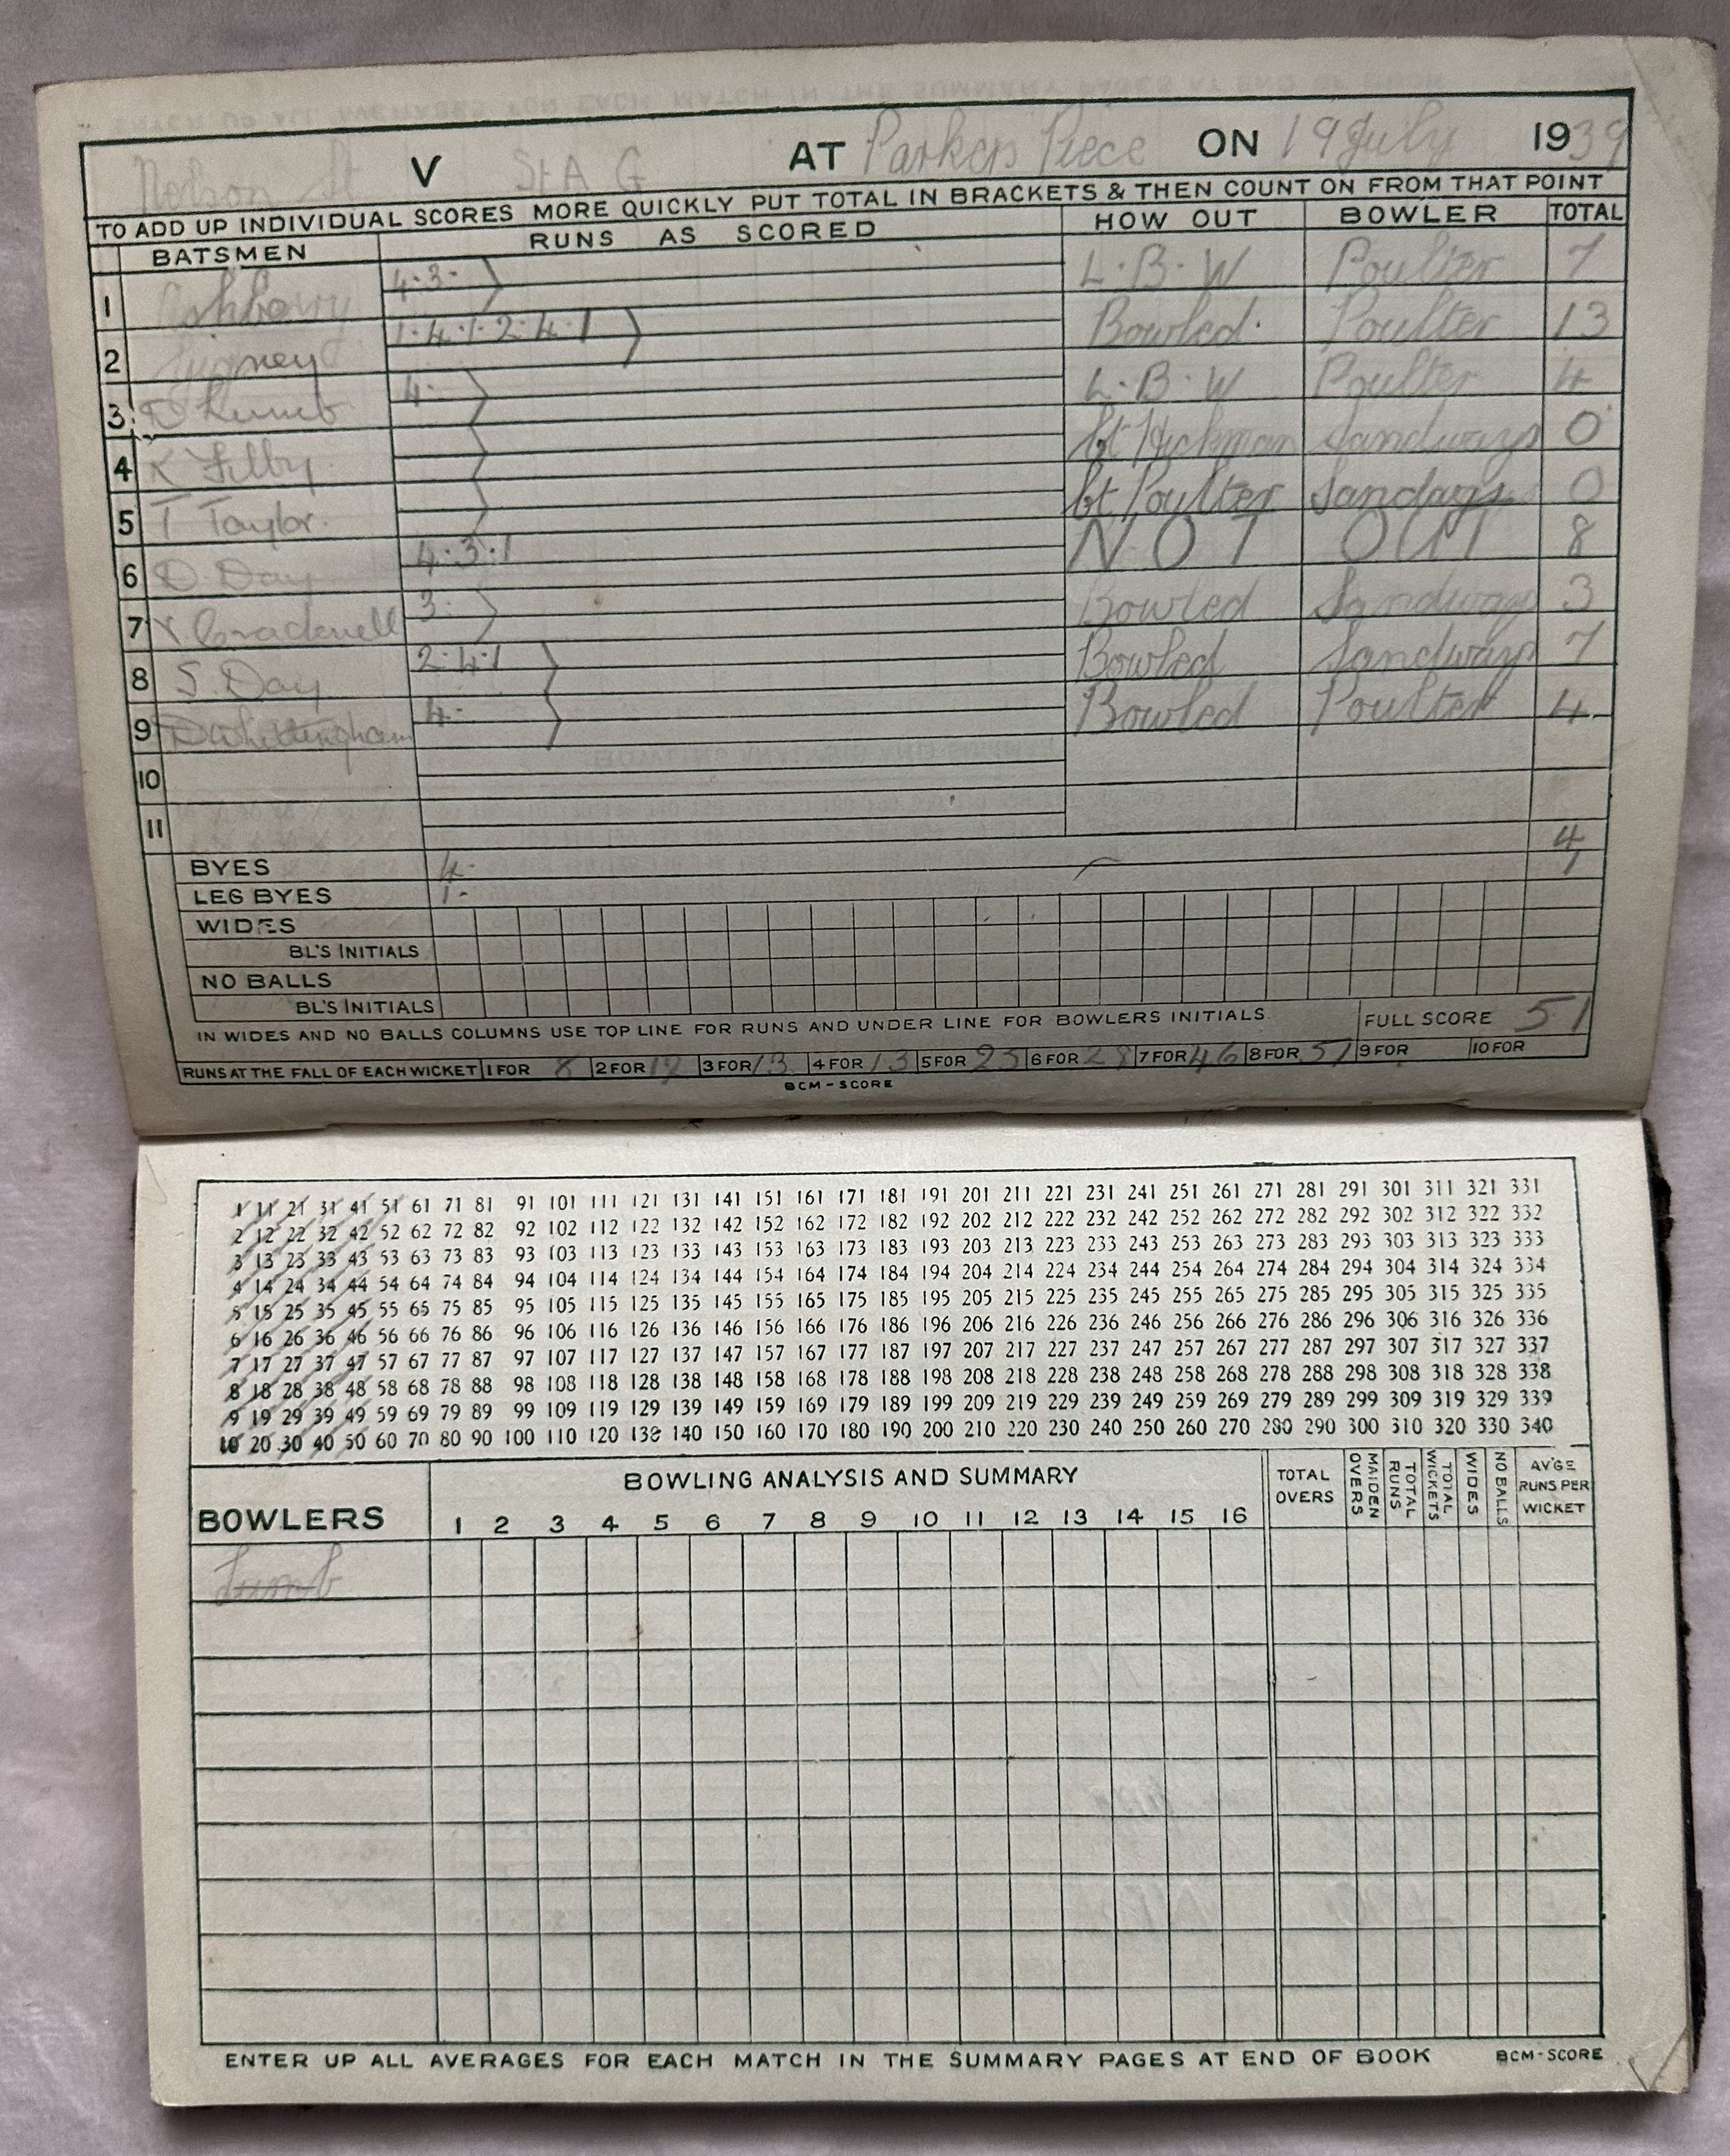 Nelson St V St A G AT Parkers Piece ON 19 July 1939
TO ADD UP INDIVIDUAL SCORES MORE QUICKLY PUT TOTAL IN BRACKETS & THEN COUNT ON FROM THAT POINT
BATSMEN RUNS AS SCORED HOW OUT BOWLER TOTAL
1 Ashberry 4·3· L·B·W Poulter 7
2 1·4·1·2·4·1 Bowled· Poulter 13
3 D Lumb 4· L·B·W Poulter 4
4 K Filby ct Hickman Sandways 0
5 T Taylor. ct Poulter Sandays 0
6 D. Day 4·3·1 NOT OUT 8
7 Cracknell 3· Bowled Sandways 3
8 S. Day 2·4·1 Bowled Sandways 7
9 D Whittingham 4· Bowled Poulter 4
10
11
BYES 4· 4
LEG BYES 1· 1
WIDES
BL'S INITIALS
NO BALLS
BL'S INITIALS
IN WIDES AND NO BALLS COLUMNS USE TOP LINE FOR RUNS AND UNDER LINE FOR BOWLERS INITIALS. FULL SCORE 51
RUNS AT THE FALL OF EACH WICKET 1 FOR 8 2 FOR 12 3 FOR 13 4 FOR 13 5 FOR 25 6 FOR 28 7 FOR 46 8 FOR 51 9 FOR 10 FOR
BCM-SCORE
1 11 21 31 41 51 61 71 81 91 101 111 121 131 141 151 161 171 181 191 201 211 221 231 241 251 261 271 281 291 301 311 321 331
2 12 22 32 42 52 62 72 82 92 102 112 122 132 142 152 162 172 182 192 202 212 222 232 242 252 262 272 282 292 302 312 322 332
3 13 23 33 43 53 63 73 83 93 103 113 123 133 143 153 163 173 183 193 203 213 223 233 243 253 263 273 283 293 303 313 323 333
4 14 24 34 44 54 64 74 84 94 104 114 124 134 144 154 164 174 184 194 204 214 224 234 244 254 264 274 284 294 304 314 324 334
5 15 25 35 45 55 65 75 85 95 105 115 125 135 145 155 165 175 185 195 205 215 225 235 245 255 265 275 285 295 305 315 325 335
6 16 26 36 46 56 66 76 86 96 106 116 126 136 146 156 166 176 186 196 206 216 226 236 246 256 266 276 286 296 306 316 326 336
7 17 27 37 47 57 67 77 87 97 107 117 127 137 147 157 167 177 187 197 207 217 227 237 247 257 267 277 287 297 307 317 327 337
8 18 28 38 48 58 68 78 88 98 108 118 128 138 148 158 168 178 188 198 208 218 228 238 248 258 268 278 288 298 308 318 328 338
9 19 29 39 49 59 69 79 89 99 109 119 129 139 149 159 169 179 189 199 209 219 229 239 249 259 269 279 289 299 309 319 329 339
10 20 30 40 50 60 70 80 90 100 110 120 130 140 150 160 170 180 190 200 210 220 230 240 250 260 270 280 290 300 310 320 330 340
BOWLERS BOWLING ANALYSIS AND SUMMARY TOTAL OVERS MAIDEN OVERS TOTAL RUNS TOTAL WICKETS WIDES NO BALLS AV'GE RUNS PER WICKET
1 2 3 4 5 6 7 8 9 10 11 12 13 14 15 16
Lumb
ENTER UP ALL AVERAGES FOR EACH MATCH IN THE SUMMARY PAGES AT END OF BOOK BCM-SCORE